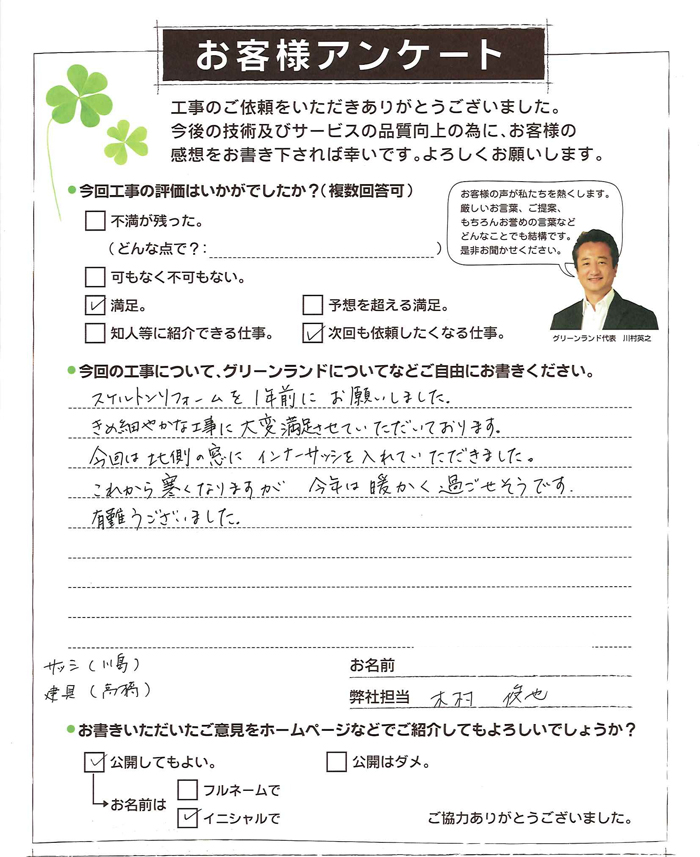 お客様アンケート
工事のご依頼をいただきありがとうございました。
今後の技術及びサービスの品質向上の為に、お客様の
感想をお書き下されば幸いです。よろしくお願いします。
今回工事の評価はいかがでしたか？(複数回答可)
不満が残った。
(どんな点で？: )
可もなく不可もない。
満足。
予想を超える満足。
知人等に紹介できる仕事。
次回も依頼したくなる仕事。
お客様の声が私たちを熱くします。
厳しいお言葉、ご提案、
もちろんお誉めの言葉など
どんなことでも結構です。
是非お聞かせください。
グリーンランド代表 川村英之
今回の工事について、グリーンランドについてなどご自由にお書きください。
スケルトンリフォームを 1年前に お願いしました。
きめ細やかな工事に 大変満足させていただいております。
今回は 北側の窓に インナーサッシを 入れていただきました。
これから 寒くなりますが 今年は 暖かく 過ごせそうです.
有難うございました。
サッシ (川島)
建具 (高橋)
お名前
弊社担当 木村 俊也
お書きいただいたご意見をホームページなどでご紹介してもよろしいでしょうか？
公開してもよい。
公開はダメ。
お名前は
フルネームで
イニシャルで
ご協力ありがとうございました。